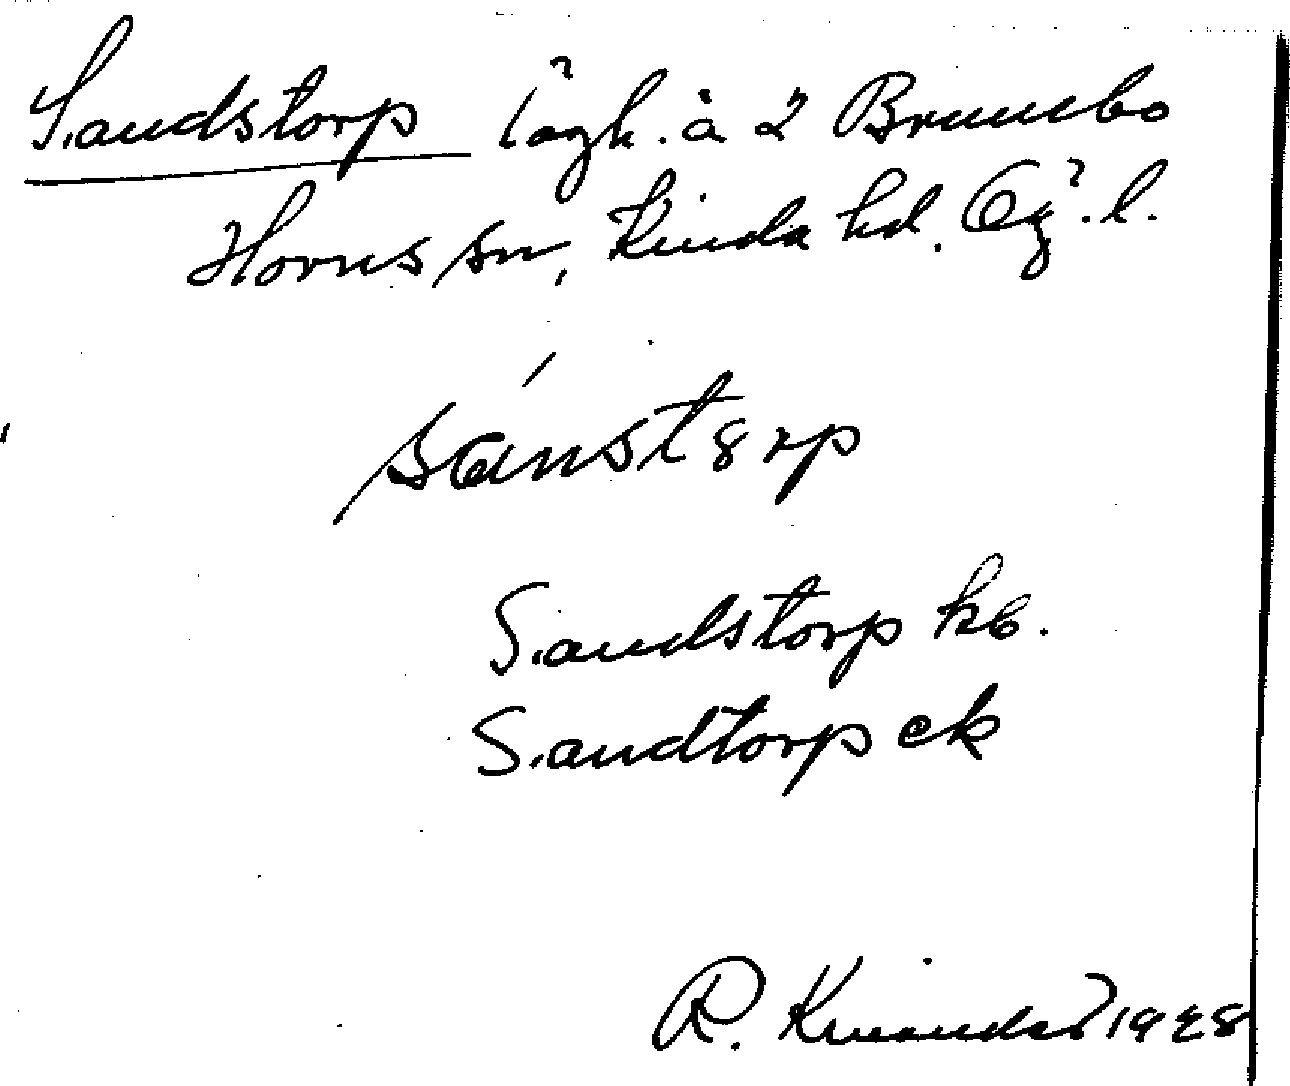 Sandstorp lägh. å 2 Brumbo
Horns sn, Kinda hd. Ög. l.
sánstərp
Sandstorp kb.
Sandtorp ek
R. 1928